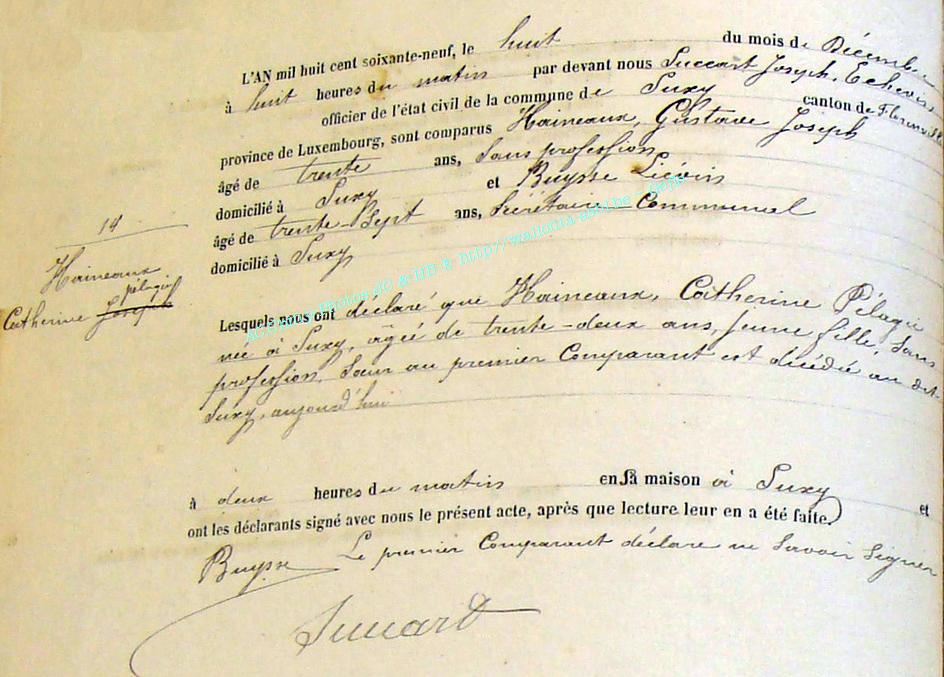 L'AN mil huit cent soixante-neuf, le huit du mois de Décembre
à huit heures du matin par devant nous Succart Joseph, Echevin
officier de l'état civil de la commune de Suxy canton de Florenville
province de Luxembourg, sont comparus Haineaux, Gustave Joseph
âgé de trente ans, Sans profession
domicilié à Suxy et Buysse Liévin
âgé de trente-Sept ans, Secrétaire-Communal
domicilié à Suxy
14
Haineaux
pélagie
Catherine Joseph
Lesquels nous ont déclaré que Haineaux, Catherine Pélagie
née à Suxy, âgée de trente-deux ans, jeune fille, Sans
profession, Sœur au premier Comparant est décédée au dit
Suxy, aujourd'hui
à deux heures du matin en Sa maison à Suxy et
ont les déclarants signé avec nous le présent acte, après que lecture leur en a été faite.
Buysse Le premier Comparant déclare ne Savoir Signer
Succard